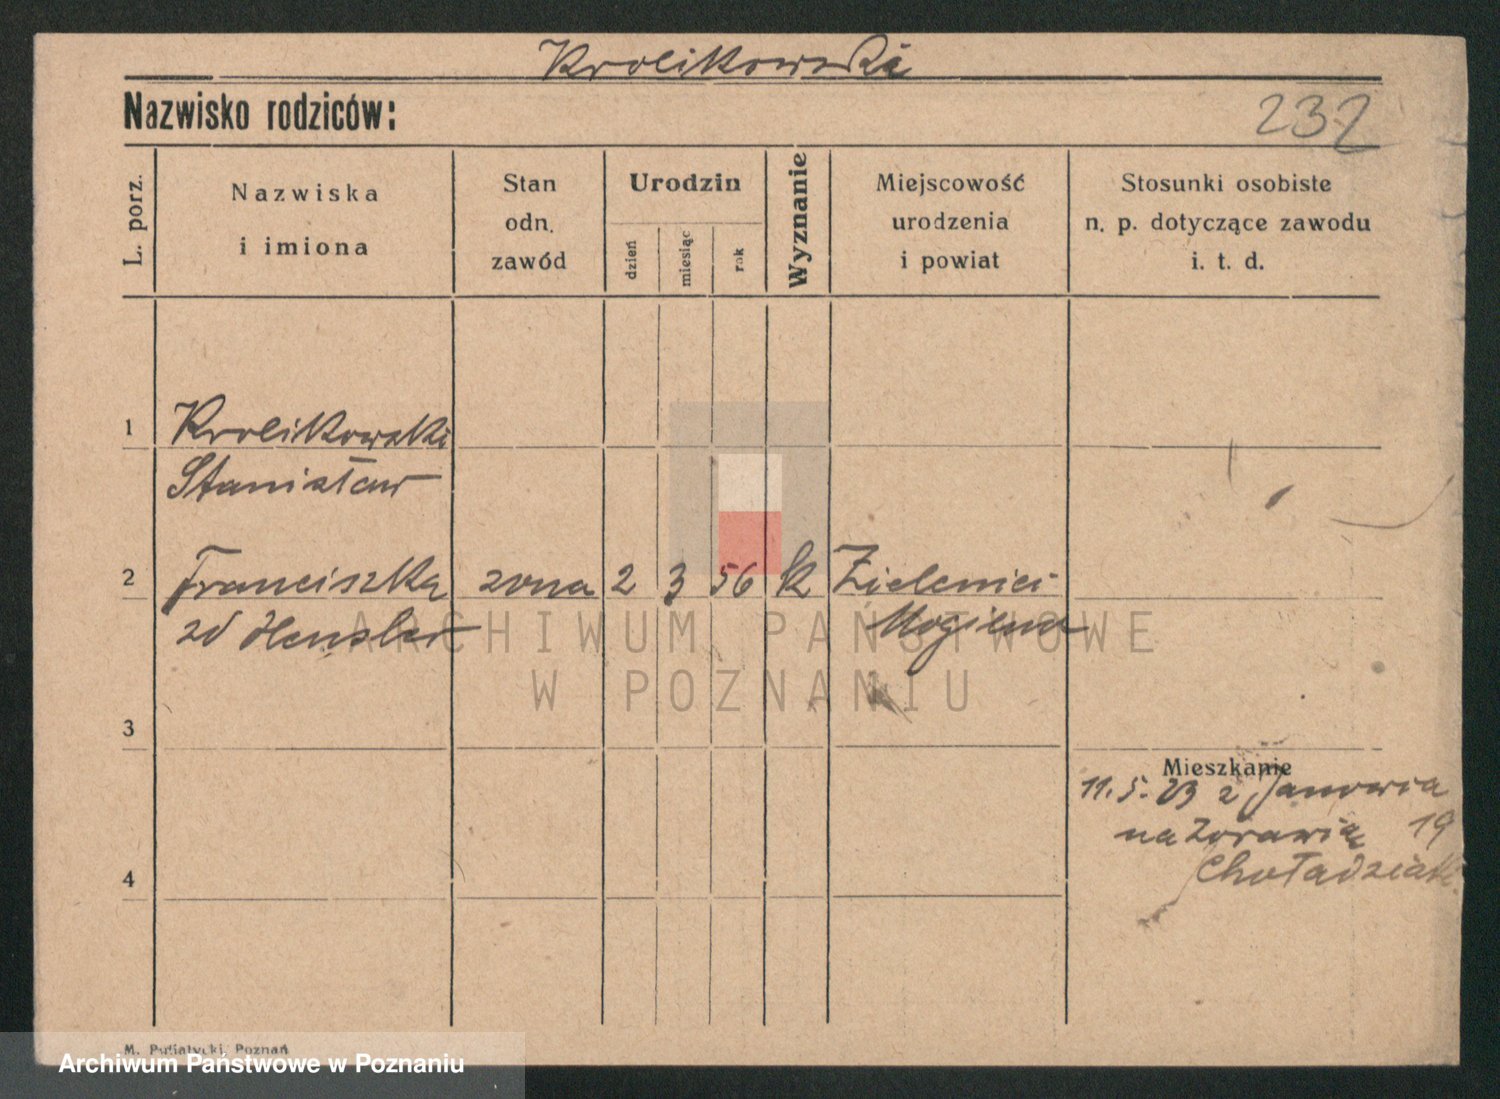 Krolikowski
Nazwisko rodziców:
232
L. porz.
Nazwiska
i imiona
Stan
odn.
zawód
Urodzin
dzień
miesiąc
rok
Wyznanie
Miejscowość
urodzenia
i powiat
Stosunki osobiste
n. p. dotyczące zawodu
i. t. d.
1 Krolikowski
Stanisław
2 Franciszka zona 2 3 56 k
zd Hensler Mogilno
ARCHIWUM PAŃSTWOWE
W POZNANIU
3
Mieszkanie
11. 5. 23 z Janowca
na Zorawią 19
4
M. Putiatycki, Poznań
Archiwum Państwowe w Poznaniu